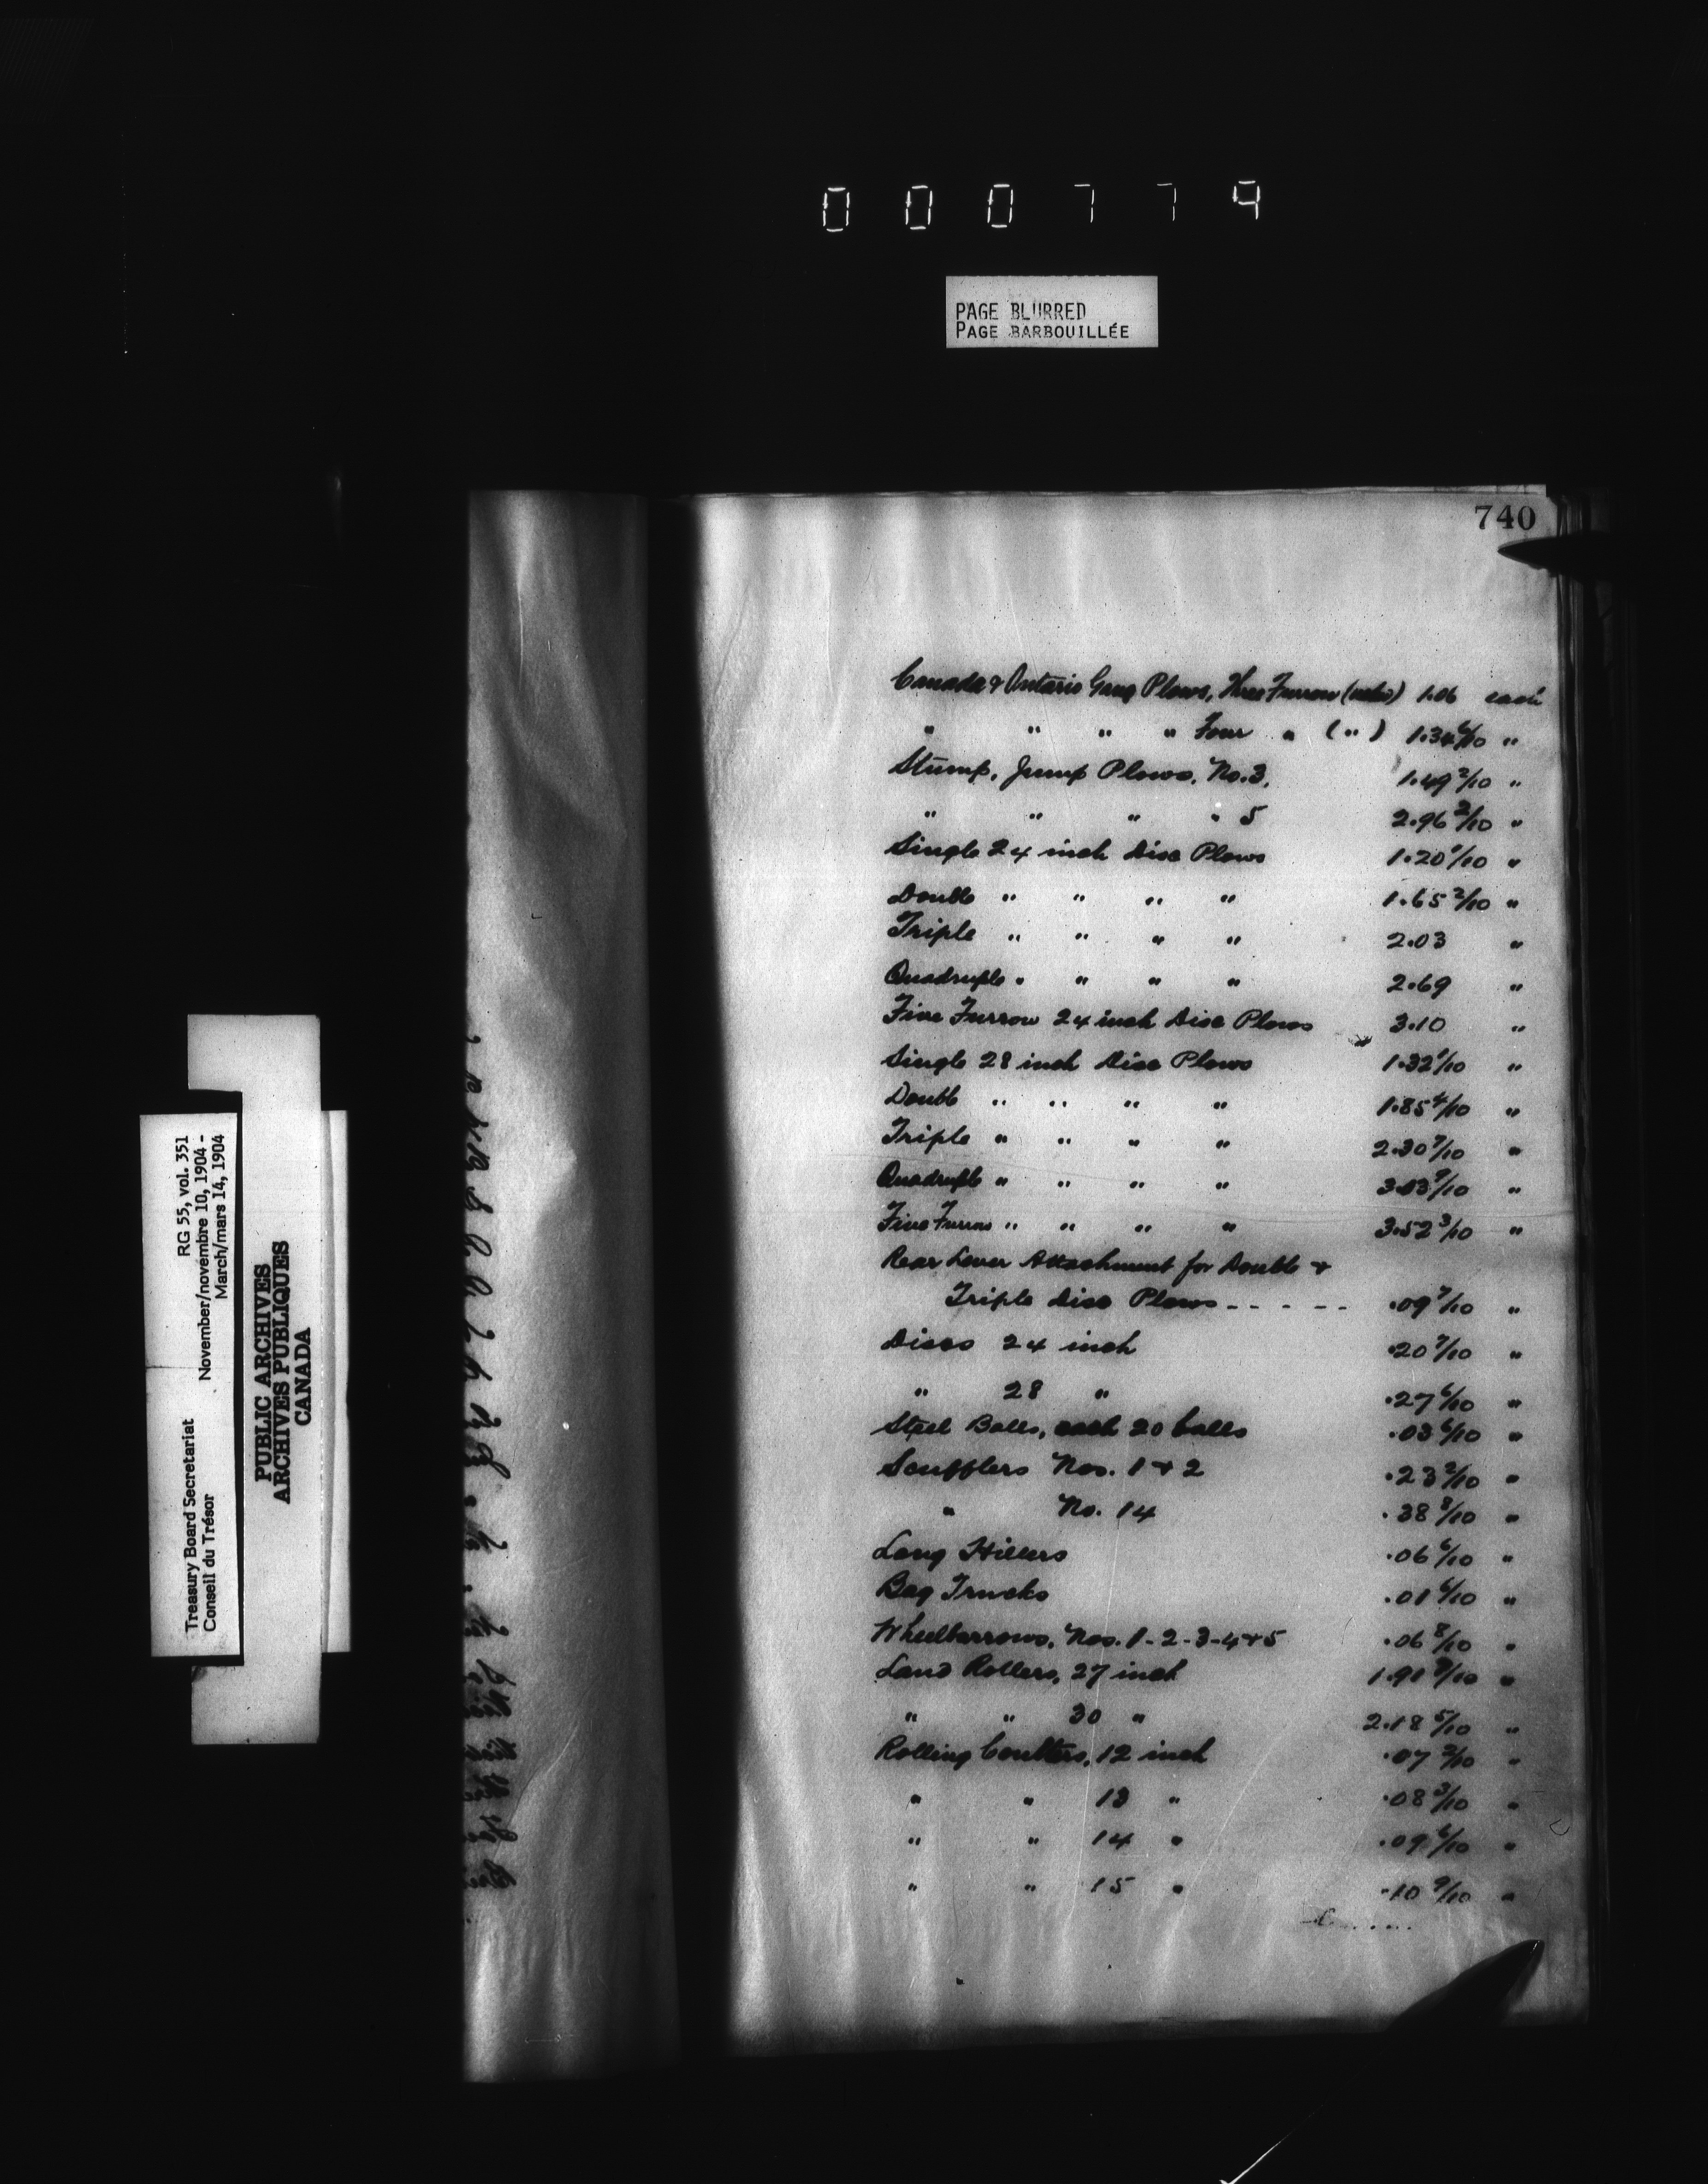 000774
PAGE BLURRED
PAGE BARBOUILLÉE
740
Canada & Ontario Gang Plows, Three Furrow 1.06 each
" " " " Four " ( " ) 1.34 6/10 "
Stump, Jump Plows, No. 3, 1.49 2/10 "
" " " " 5 2.96 2/10 "
Single 24 inch Disc Plows 1.20 1/10 "
Double " " " " 1.65 2/10 "
Triple " " " " 2.03 "
Quadruple " " " " 2.69 "
Five Furrow 24 inch Disc Plows 3.10 "
Single 28 inch Disc Plows 1.32 1/10 "
Double " " " " 1.85 4/10 "
Triple " " " " 2.30 7/10 "
Quadruple " " " " "
Five Furrow " " " " 3.52 3/10 "
Rear Lever Attachment for Double &
Triple Disc Plows - - - - - .09 7/10 "
Discs 24 inch .20 7/10 "
" 28 " .27 6/10 "
Steel Balls, each 20 balls .03 6/10 "
Scufflers Nos. 1 & 2 .23 2/10 "
" No. 14 .38 8/10 "
Long Hillers .06 6/10 "
Bag Trucks .01 6/10 "
Wheelbarrows, Nos. 1-2-3-4 & 5 .06 8/10 "
Land Rollers, 27 inch 1.91 "
" " 30 " 2.18 5/10 "
Rolling Coulters, 12 inch .07 2/10 "
" " 13 " .08 3/10 "
" " 14 " .09 6/10 "
" " 15 " .10 9/10 "
Treasury Board Secretariat RG 55, vol. 351
Conseil du Trésor November/novembre 10, 1904 -
March/mars 14, 1904
PUBLIC ARCHIVES
ARCHIVES PUBLIQUES
CANADA